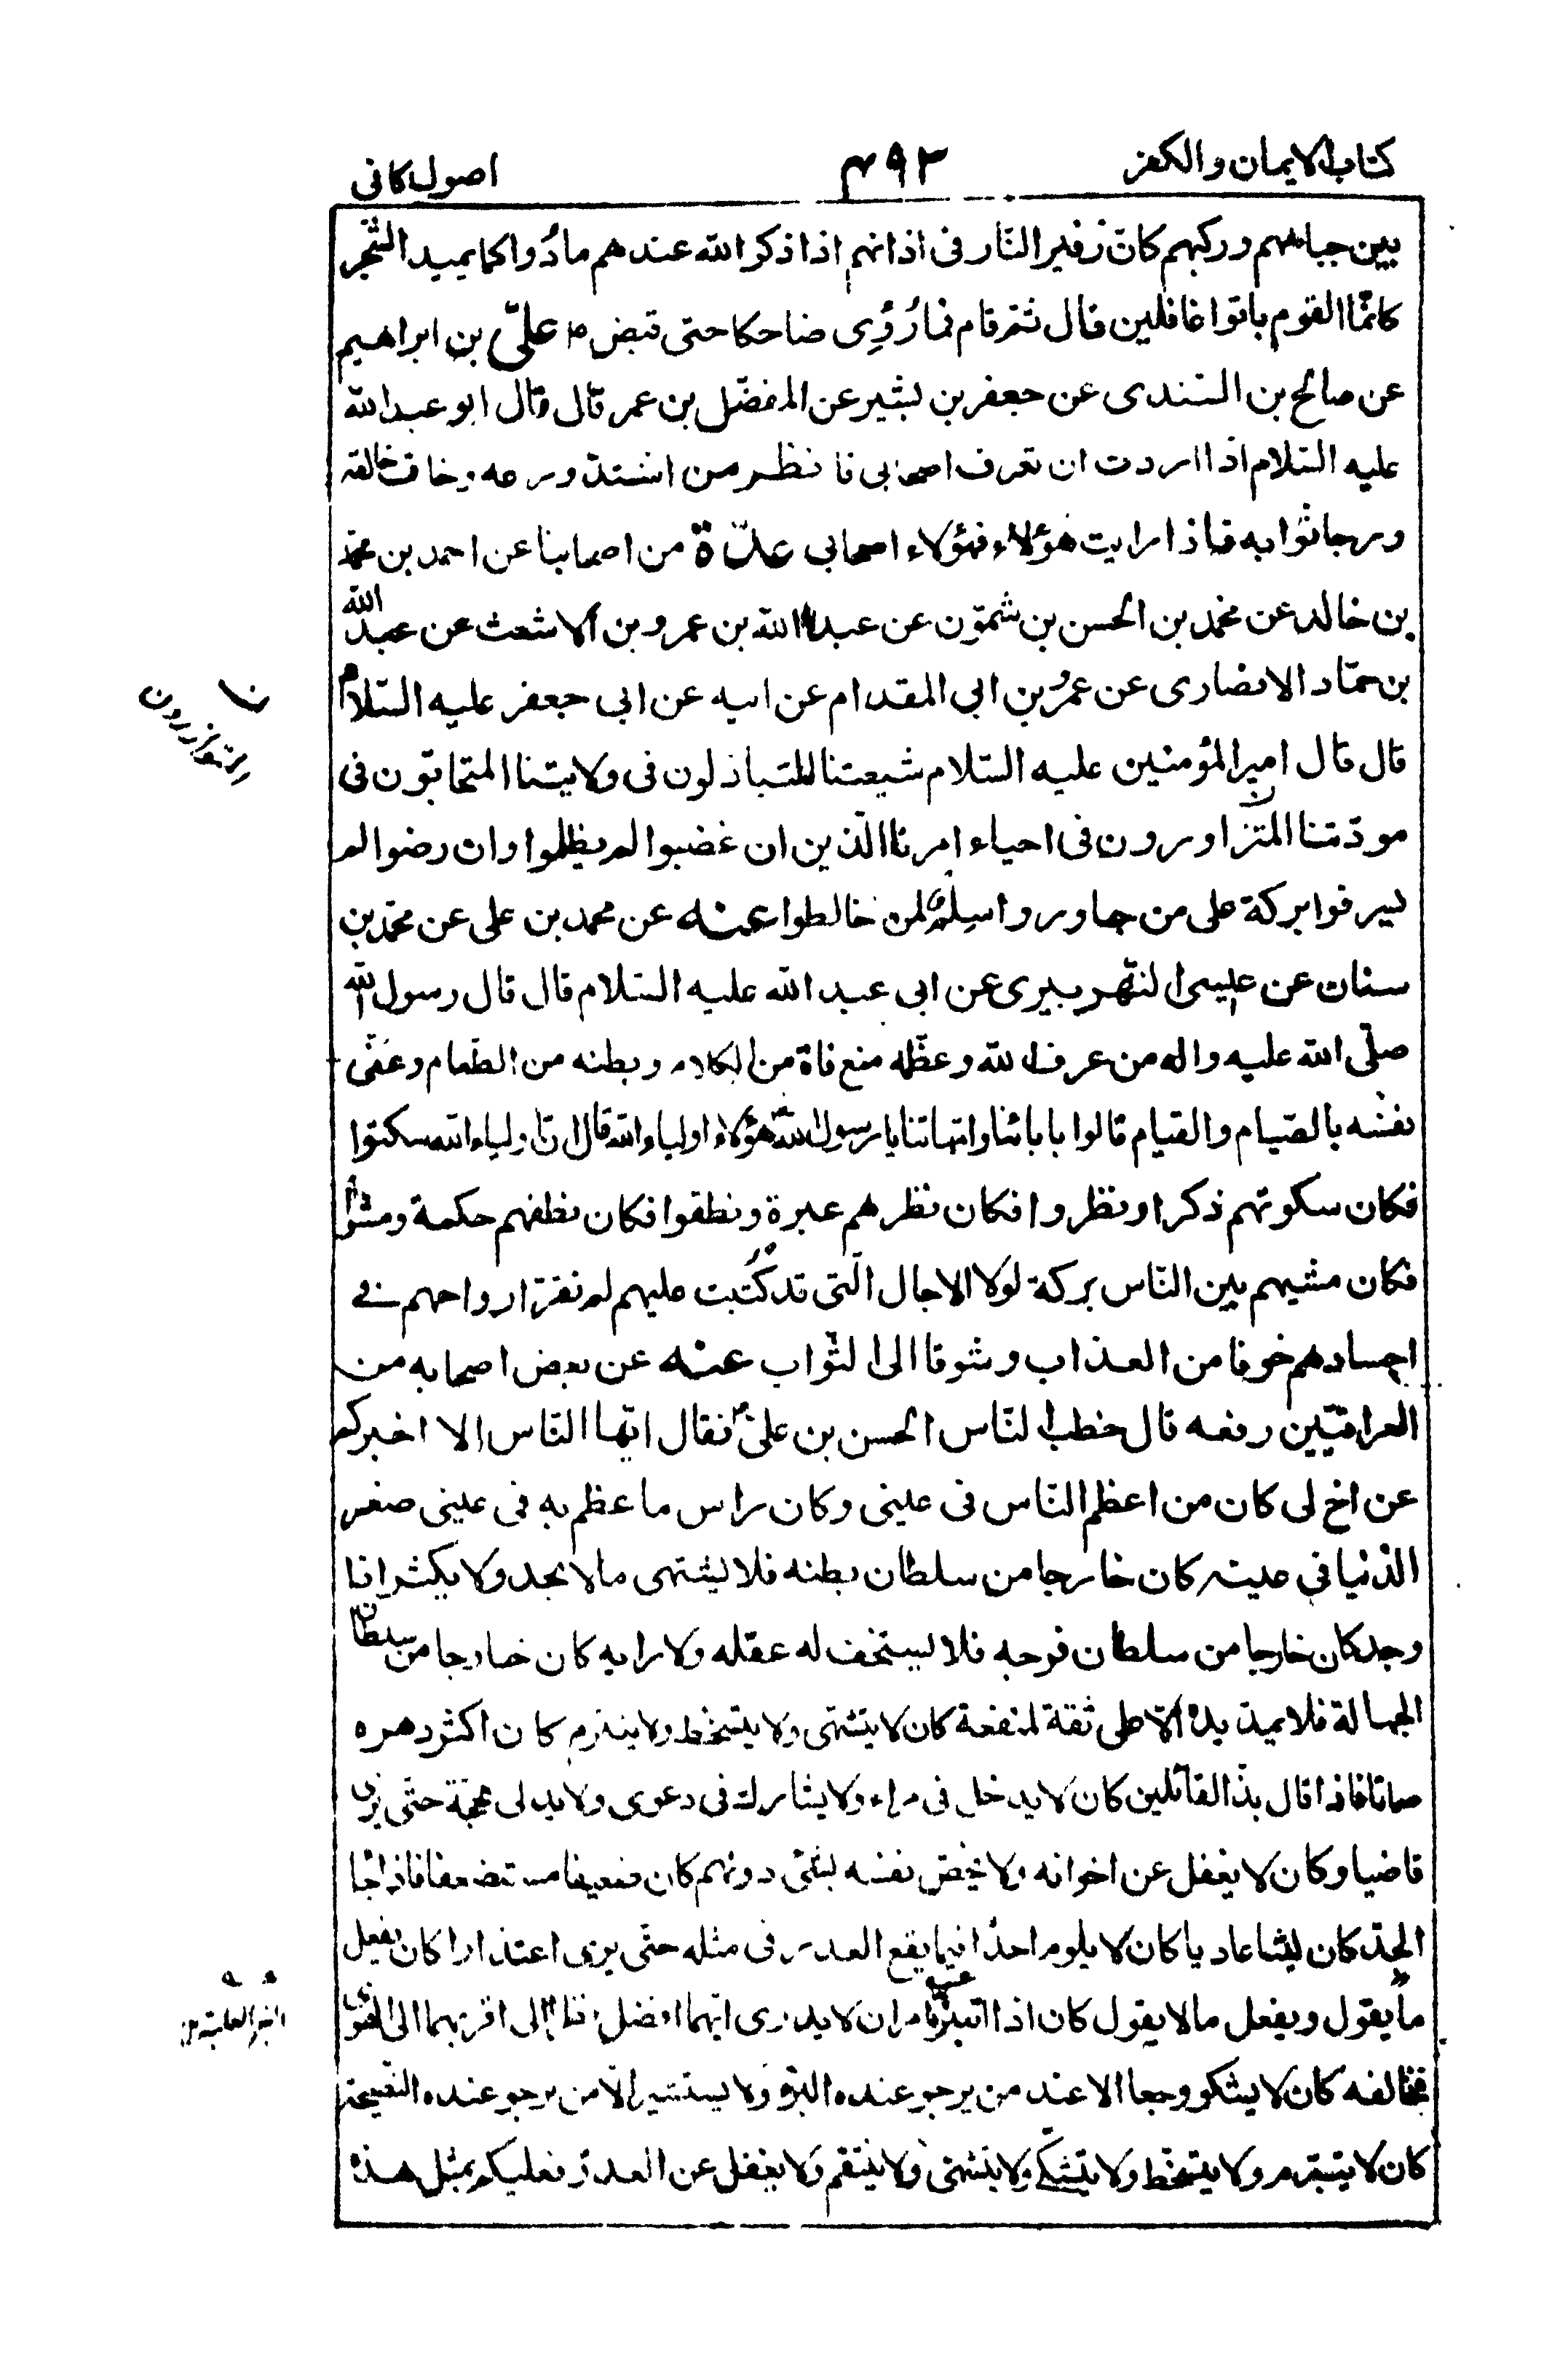 كتاب الايمان والكفر
٤٩٢
اصول كافى
بين جباههم وركبهم كان زفير النّار فى اذانهم اذا ذكر الله عندهم مادُوا كما يميد الشّجر
كانّما القوم باتوا غافلين قال ثمّ قام فما رُؤِى ضاحكا حتى قبض ع علىّ بن ابراهيم
عن صالح بن السّندى عن جعفر بن بشير عن المفضّل بن عمر قال قال ابو عبدالله
عليه السّلام اذا اردت ان تعرف اصحابى فانظر من اشتدّ ورعه وخاف خالقه
ورجا ثوابه فاذا رايت هؤلاء فهؤلاء اصحابى عدّة من اصحابنا عن احمد بن محمّد
بن خالد عن محمّد بن الحسن بن شمّون عن عبدالله بن عمرو بن الاشعث عن عبدالله
بن حمّاد الانصارى عن عمرو بن ابى المقدام عن ابيه عن ابى جعفر عليه السّلام
قال قال امير المؤمنين عليه السّلام شيعتنا المتباذلون فى ولايتنا المتحابّون فى
مودّتنا المتزاورون فى احياء امرنا الّذين ان غضبوا لم يظلموا وان رضوا لم
يسرفوا بركة على من جاوروا سِلم لمن خالطوا عنه عن محمد بن على عن محمّد بن
سنان عن عيسى النّهريرى عن ابى عبد الله عليه السّلام قال قال رسول الله
صلّى الله عليه واله من عرف الله وعظّمه منع فاه من الكلام وبطنه من الطّعام وعفّى
نفسه بالصّيام والقيام قالوا بابائنا وامّهاتنا يا رسول الله هؤلاء اولياء الله قال انّ اولياء الله سكتوا
فكان سكوتهم ذكرا ونظروا فكان نظرهم عبرة ونطقوا فكان نطقهم حكمة ومشوا
فكان مشيهم بين النّاس بركة لولا الاجال الّتى قد كُتبت عليهم لم تقرّ ارواحهم فى
اجسادهم خوفا من العذاب وشوقا الى الثّواب عنه عن بعض اصحابه من
العراقيّين رفعه قال خطب النّاس الحسن بن علىّ ع فقال ايّها النّاس الا اخبركم
عن اخ لى كان من اعظم النّاس فى عينى وكان راس ما عظم به فى عينى صغر
الدّنيا فى عينه كان خارجا من سلطان بطنه فلا يشتهى ما لا يجد ولا يكثر اذا
وجد كان خارجا من سلطان فرجه فلا يستخف له عقله ولا رايه كان خارجا من سلطان
الجهالة فلا يمدّ يده الّا على ثقة لمنفعة كان لا يتشهّى ولا يتسخّط ولا يتبرّم كان اكثر دهره
صمّاتا فاذا قال بذّ القائلين كان لا يدخل فى مراء ولا يشارك فى دعوى ولا يدلى بحجّة حتّى يرى
قاضيا وكان لا يغفل عن اخوانه ولا يخصّ نفسه بشئ دونهم كان ضعيفا مستضعفا فاذا جا
الجدّ كان ليثا عاديا كان لا يلوم احدا فيما يقع العذر فى مثله حتّى يرى اعتذارا كان يفعل
ما يقول ويفعل ما لا يقول كان اذا ابتزّه امران لا يدرى ايّهما افضل نظر الى اقربهما الى الهوى
فخالفه كان لا يشكو وجعا الا عند من يرجو عنده البرء ولا يستشير الّا من يرجو عنده النّصيحة
كان لا يتبرّم ولا يتسخّط ولا يتشكّى ولا يتشهّى ولا ينتقم ولا يغفل عن العدوّ فعليكم بمثل هذه